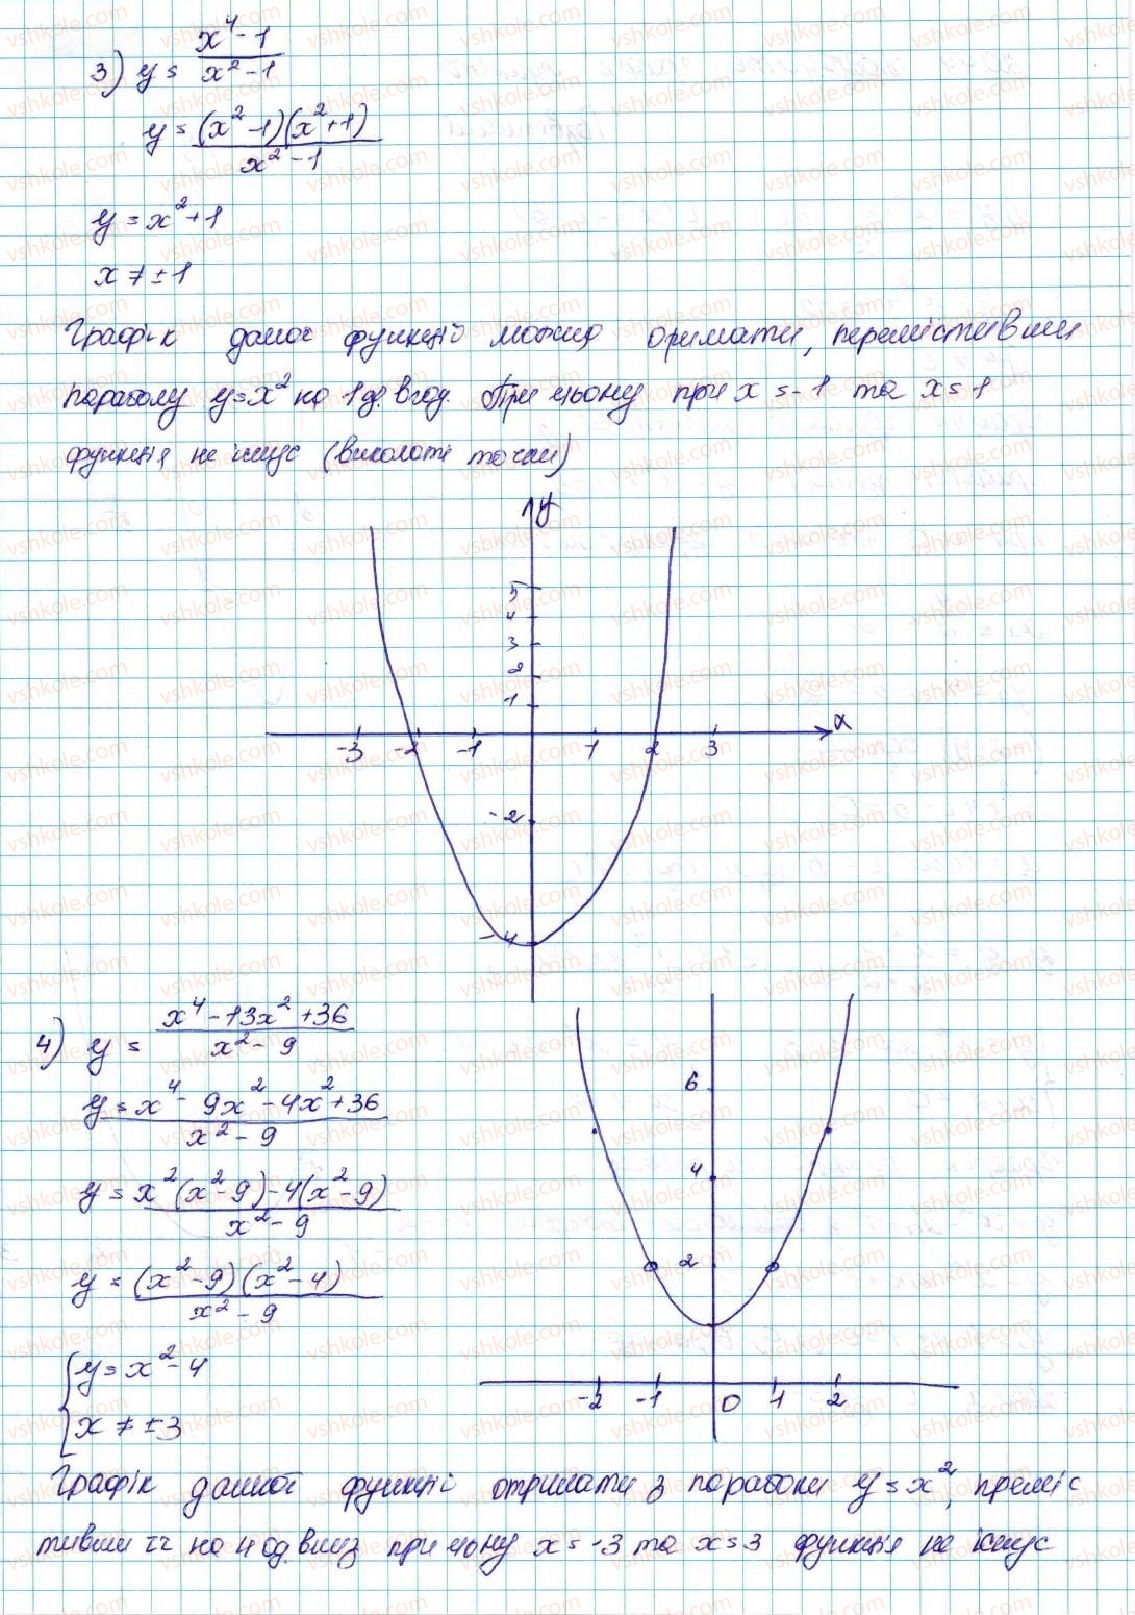 3) y = x⁴ - 1 / x² - 1
y = (x² - 1)(x² + 1) / x² - 1
y = x² + 1
x ≠ ±1
Графік даної функції можна отримати, перемістивши
параболу y = x² на 1 од. вгору. При цьому при x = -1 та x = 1
функція не існує (виколоті точки)
y
5
4
3
2
1
x
-3 -2 -1 1 2 3
-2
-4
4) y = x⁴ - 13x² + 36 / x² - 9
y = x⁴ - 9x² - 4x² + 36 / x² - 9
y = x²(x² - 9) - 4(x² - 9) / x² - 9
y = (x² - 9)(x² - 4) / x² - 9
y = x² - 4
x ≠ ±3
6
4
2
-2 -1 0 1 2
Графік даної функції отримати з параболи y = x², переміс
тивши її на 4 од. вниз при цьому x = -3 та x = 3 функція не існує
vshkole.com